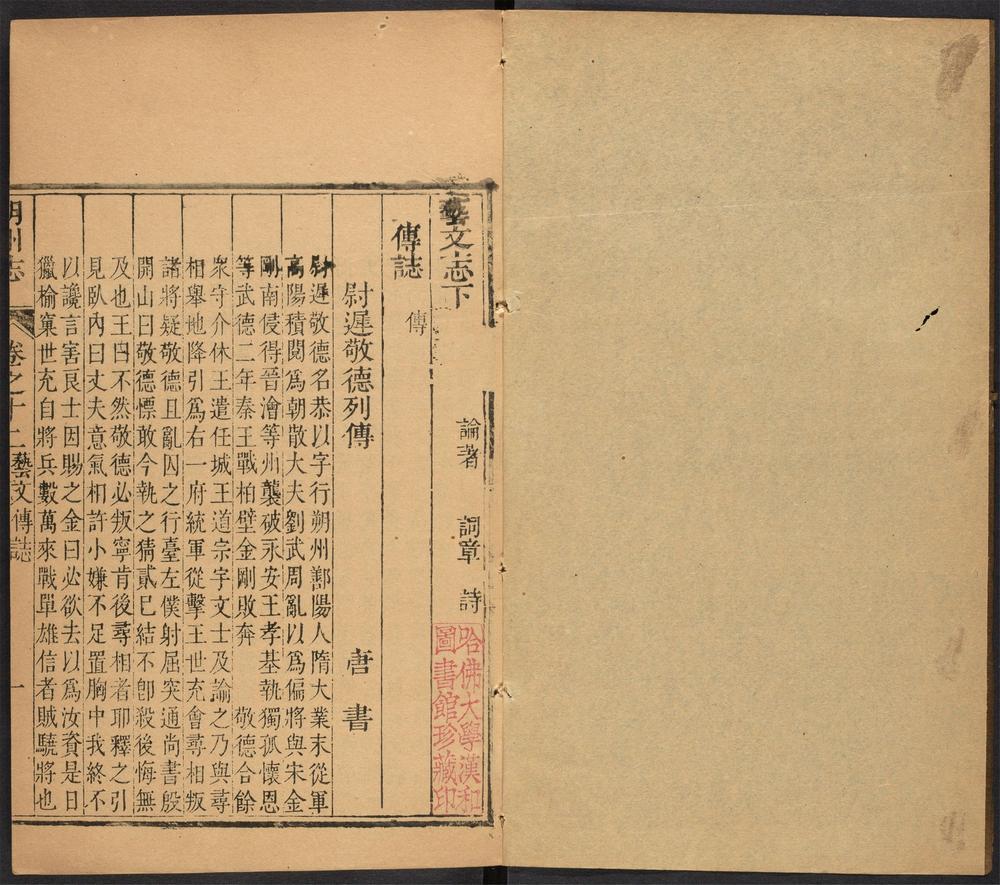 藝文志下
論著 詞章 詩
哈佛大學漢和
圖書館珍藏印
傳誌
傳
尉遲敬德列傳 唐書
尉遲敬德名恭以字行朔州鄯陽人隋大業末從軍
高陽積閱爲朝散大夫劉武周亂以爲偏將與宋金
剛南侵得晉澮等州襲破永安王孝基執獨孤懷恩
等武德二年秦王戰柏壁金剛敗奔 敬德合餘
衆守介休王遣任城王道宗宇文士及諭之乃與尋
相舉地降引爲右一府統軍從擊王世充會尋相叛
諸將疑敬德且亂囚之行臺左僕射屈突通尚書殷
開山曰敬德慓敢今執之猜貳已結不卽殺後悔無
及也王曰不然敬德必叛寧肯後尋相者耶釋之引
見臥內曰丈夫意氣相許小嫌不足置胸中我終不
以讒言害良士因賜之金曰必欲去以爲汝資是日
獵榆窠世充自將兵數萬來戰單雄信者賊驍將也
朔州志 卷之十二藝文傳誌 一